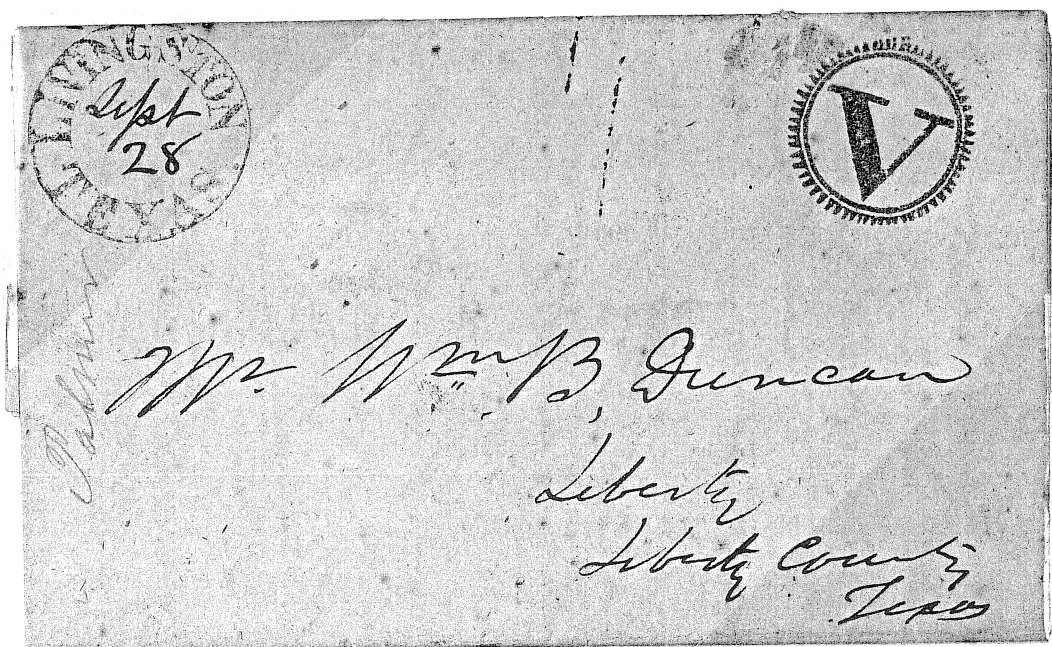 LIVINGSTON TEXAS
Sept
28
V
Mr. Wm. B, Duncan
Liberty
Liberty County
Texas